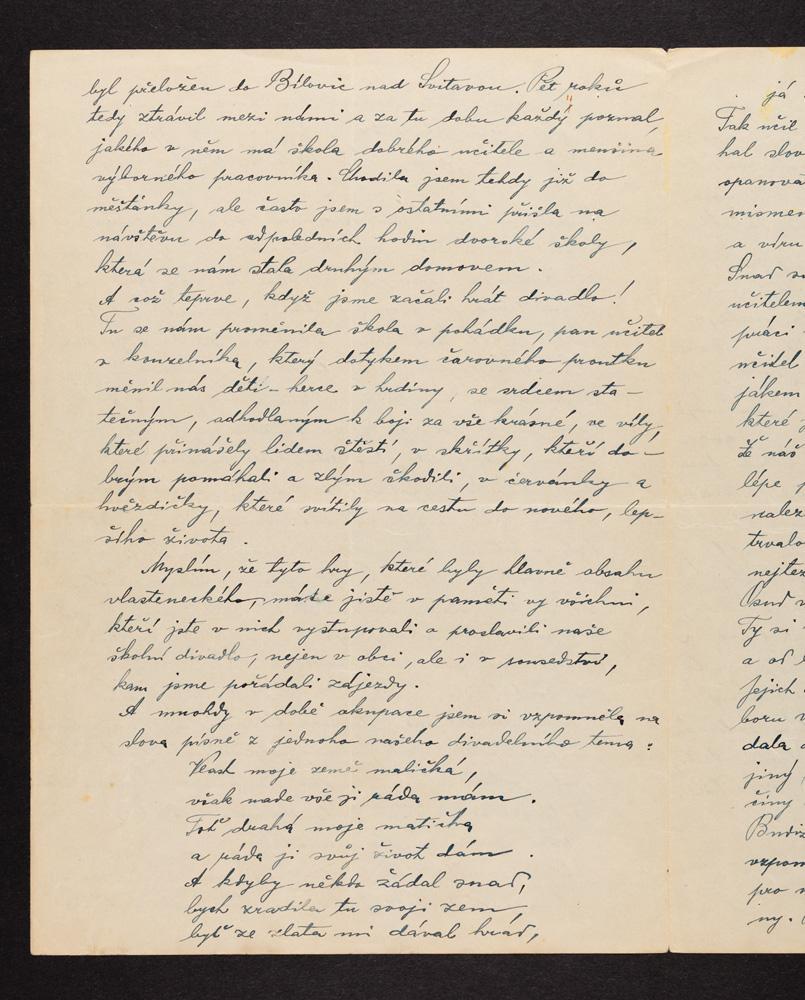 byl přeložen do Bílovic nad Svitavou. Pět roků
tedy ztrávil mezi námi a za tu dobu každý poznal,
jakého v něm má škola dobrého učitele a menšina
výborného pracovníka. Chodila jsem tehdy již do
měšťanky, ale často jsem s ostatními přišla na
návštěvu do odpoledních hodin dvorské školy,
která se nám stala druhým domovem.
A což teprve, když jsme začali hrát divadlo!
Tu se nám proměnila škola v pohádku, pan učitel
v kouzelníka, který dotykem čarovného proutku
měnil nás děti - herce v hrdiny, se srdcem sta-
tečným, odhodlaným k boji za vše krásné, ve víly,
které přinášely lidem štěstí, v skřítky, kteří do-
brým pomáhali a zlým škodili, v červánky a
hvězdičky, které svítily na cestu do nového, lep-
šího života.
Myslím, že tyto hry, které byly hlavně obsahu
vlasteneckého, máte jistě v paměti vy všichni,
kteří jste v nich vystupovali a proslavili naše
školní divadlo, nejen v obci, ale i v sousedství,
kam jsme pořádali zájezdy.
A mnohdy v době okupace jsem si vzpomněla na
slova písně z jednoho našeho divadelního tema:
Vlast moje země maličká,
však nade vše ji ráda mám.
Toť drahá moje matička
a ráda ji svůj život dám.
A kdyby někdo žádal snad,
bych zradila tu svoji zem,
byť ze zlata mi dával hrad,
já
Tak učil
hal slov
opanova
mismen
a víru
Snad s
učitelem
práci
učitel
jakém
které
že náš
lépe
nalez
trvalo
nejtěž
Osud
Ty si
a od
Jejich
boru v
dala
jiný
činy
Budiž
vzpom
pro
ny.